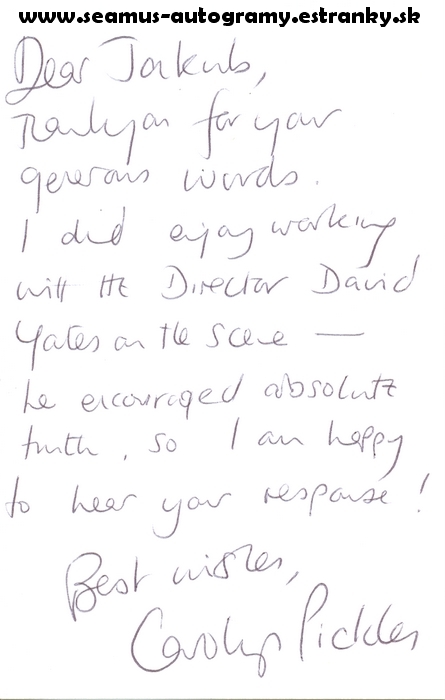 www.seamus-autogramy.estranky.sk
Dear Jakub,
Thankyou for your
generous words.
I did enjoy working
with the Director David
Yates on the scene —
he encouraged absolute
truth, so I am happy
to hear your response!
Best wishes,
Carolyn Pickles